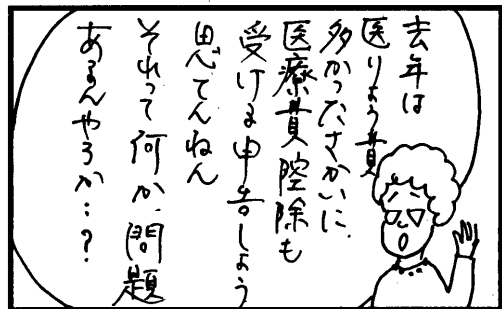 去年は
医りょう費
多かったさかいに、
医療費控除も
受ける申告しよう
思てんねん
それって何か問題
あるんやろか…?